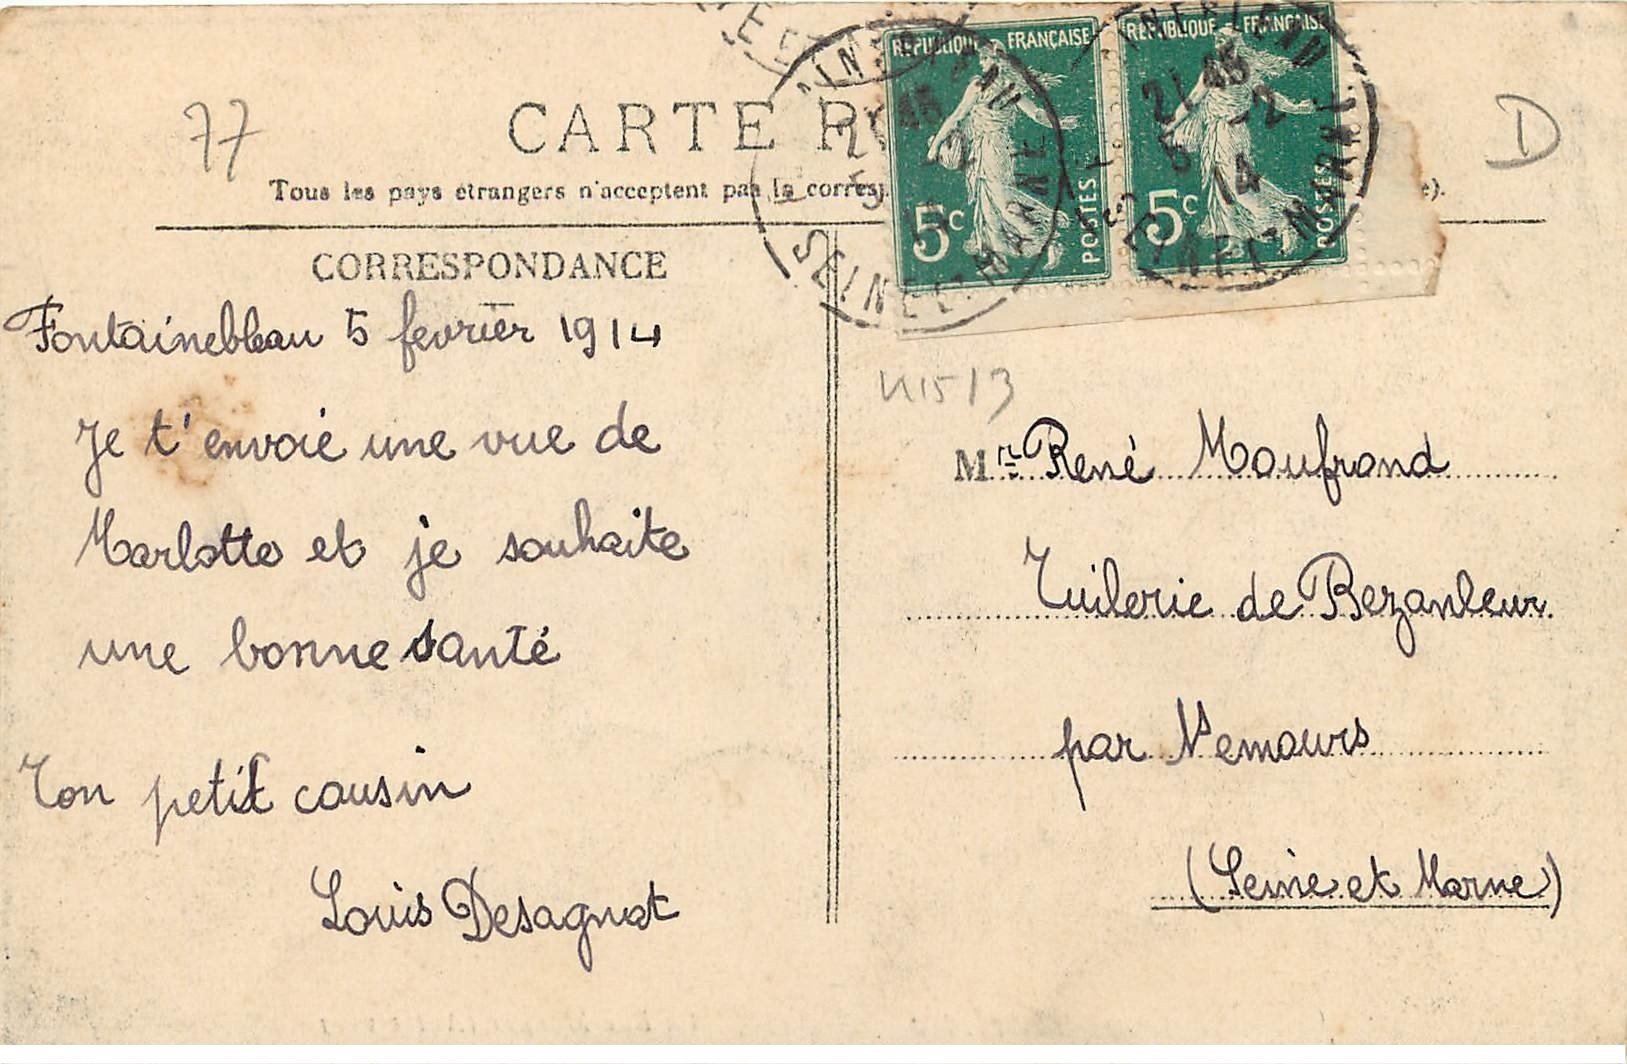 77
D
CARTE
Tous les pays étrangers n'acceptent pas la corresp
e).
RÉPUBLIQUE FRANÇAISE
5c
POSTES
RÉPUBLIQUE FRANÇAISE
5c
POSTES
SEINE ET MARNE
21 45
5 -2
14
CORRESPONDANCE
Fontainebleau 5 fevrier 1914
Je t'envoie une vue de
Marlotte et je souhaite
une bonne santé
Ton petit cousin
Louis Desagnat
Mr René Moufrond
Tuilerie de Bezanleur
par Nemours
(Seine et Marne)